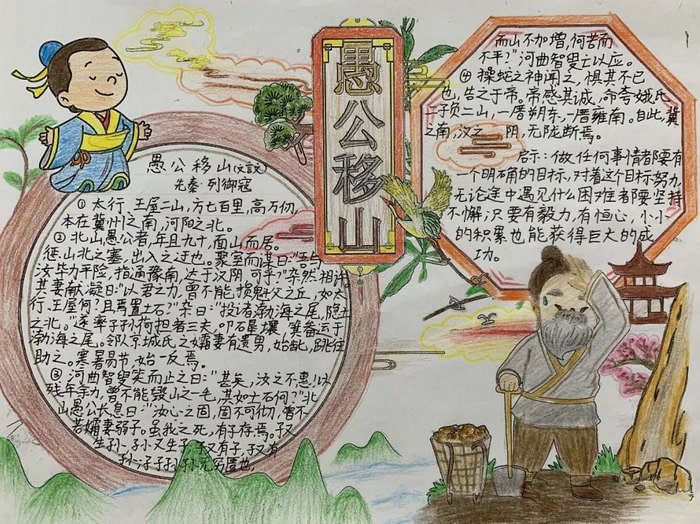 愚公移山
愚公移山(文言文)
先秦·列御寇
①太行、王屋二山,方七百里,高万仞,
本在冀州之南,河阳之北。
②北山愚公者,年且九十,面山而居。
惩山北之塞,出入之迂也。聚室而谋曰:"吾与
汝毕力平险,指通豫南,达于汉阴,可乎?"杂然相许。
其妻献疑曰:"以君之力,曾不能损魁父之丘,如太
行、王屋何?且焉置土石?"杂曰:"投诸渤海之尾,隐土
之北。"遂率子孙荷担者三夫,叩石垦壤,箕畚运于
渤海之尾。邻人京城氏之孀妻有遗男,始龀,跳往
助之。寒暑易节,始一反焉。
③河曲智叟笑而止之曰:"甚矣,汝之不惠!以
残年余力,曾不能毁山之一毛,其如土石何?"北
山愚公长息曰:"汝心之固,固不可彻,曾不
若孀妻弱子。虽我之死,有子存焉。子又
生孙,孙又生子;子又有子,子又有
孙;子子孙孙无穷匮也,
而山不加增,何苦而
不平?"河曲智叟亡以应。
④操蛇之神闻之,惧其不已
也,告之于帝。帝感其诚,命夸娥氏
二子负二山,一厝朔东,一厝雍南。自此,冀
之南,汉之阴,无陇断焉。
启示:做任何事情者都要有
一个明确的目标,对着这个目标努力,
无论途中遇见什么困难者都要坚持
不懈;只要有毅力,有恒心,小小
的积累也能获得巨大的成
功。